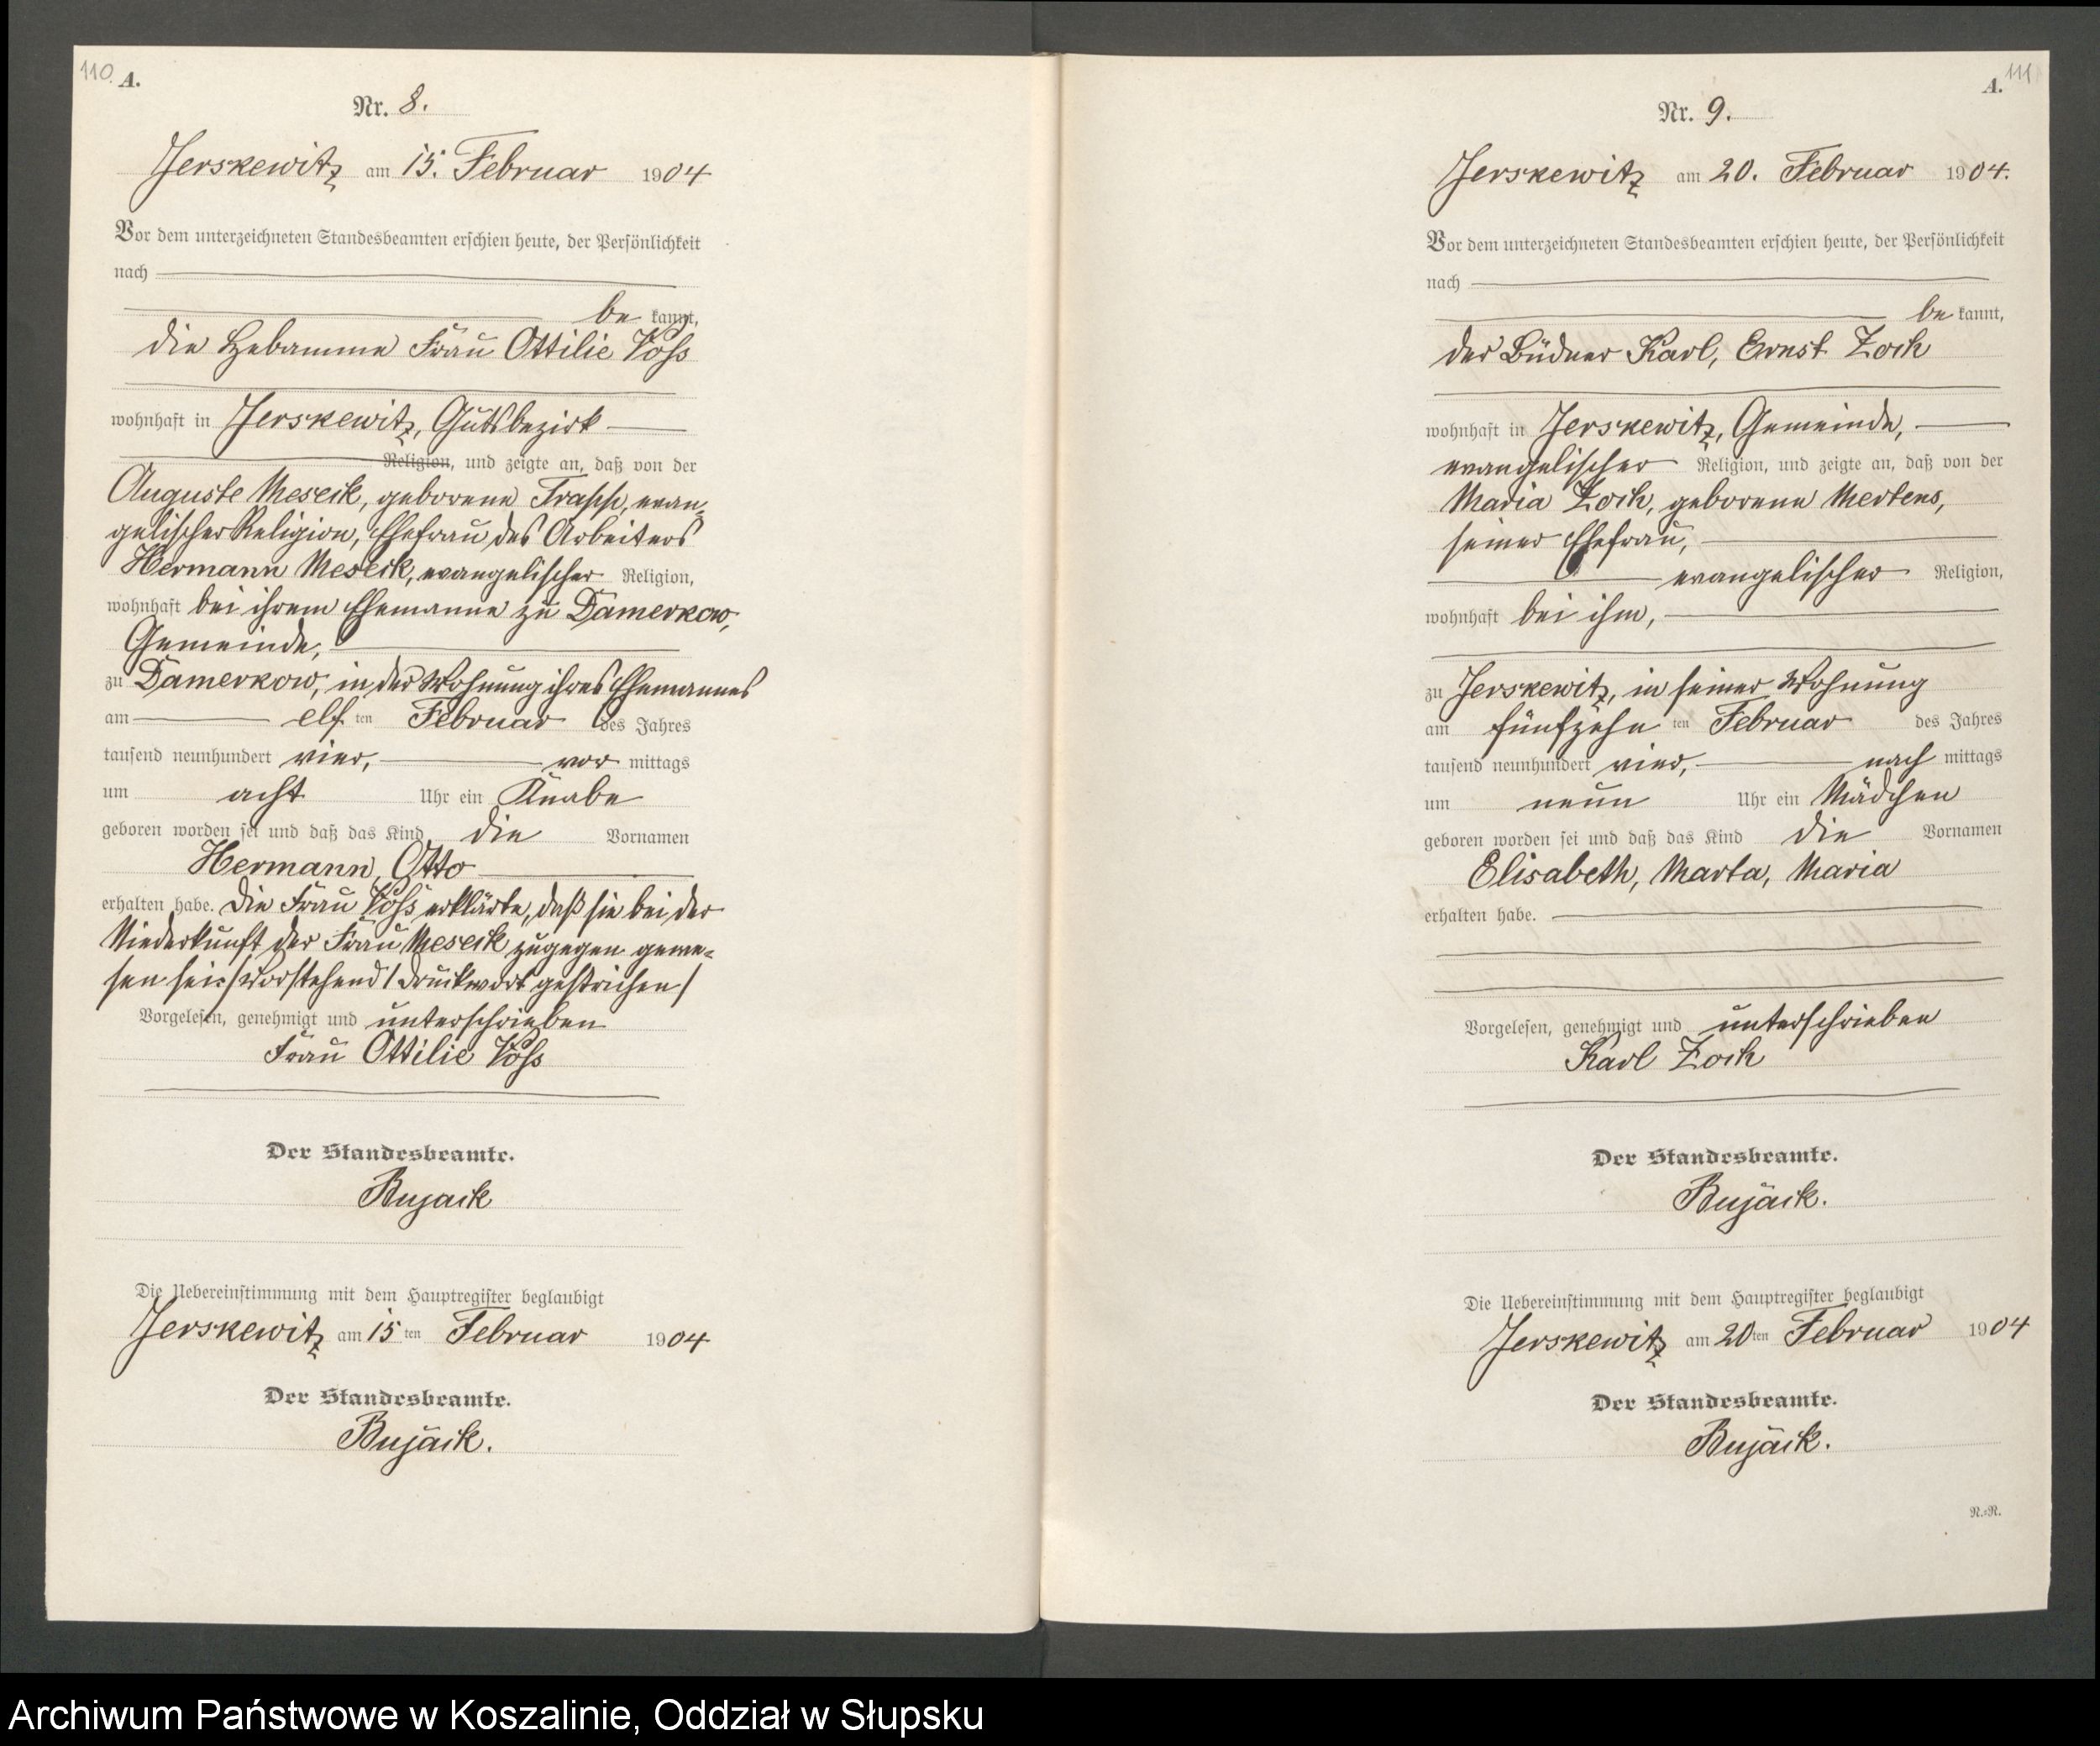 110.
A.
Nr. 8.
Jerskewitz am 15. Februar 1904
Vor dem unterzeichneten Standesbeamten erschien heute, der Persönlichkeit
nach
be kannt,
die Hebamme Frau Ottilie Voß
wohnhaft in Jerskewitz, Gutsbezirk
Religion, und zeigte an, daß von der
Auguste Meseck, geborene Trapp, evan-
gelischer Religion, Ehefrau des Arbeiters
Hermann Meseck, evangelischer Religion,
wohnhaft bei ihrem Ehemanne zu Damerkow,
Gemeinde,
zu Damerkow, in der Wohnung ihres Ehemannes
am elf ten Februar des Jahres
tausend neunhundert vier, vor mittags
um acht Uhr ein Knabe
geboren worden sei und daß das Kind die Vornamen
Hermann, Otto
erhalten habe. Die Frau Voß erklärte, daß sie bei der
Niederkunft der Frau Meseck zugegen gewe-
sen sei. /Vorstehend 1 Druckwort gestrichen/
Vorgelesen, genehmigt und unterschrieben
Frau Ottilie Voß
Der Standesbeamte.
Bujack
Die Uebereinstimmung mit dem Hauptregister beglaubigt
Jerskewitz am 15 ten Februar 1904
Der Standesbeamte.
Bujack.
111
A.
Nr. 9.
Jerskewitz am 20. Februar 1904.
Vor dem unterzeichneten Standesbeamten erschien heute, der Persönlichkeit
nach
be kannt,
der Büdner Karl, Ernst Zoch
wohnhaft in Jerskewitz, Gemeinde,
evangelischer Religion, und zeigte an, daß von der
Maria Zoch, geborene Mertens,
seiner Ehefrau,
evangelischer Religion,
wohnhaft bei ihm,
zu Jerskewitz, in seiner Wohnung
am fünfzehn ten Februar des Jahres
tausend neunhundert vier, nach mittags
um neun Uhr ein Mädchen
geboren worden sei und daß das Kind die Vornamen
Elisabeth, Marta, Maria
erhalten habe.
Vorgelesen, genehmigt und unterschrieben
Karl Zoch
Der Standesbeamte.
Bujack.
Die Uebereinstimmung mit dem Hauptregister beglaubigt
Jerskewitz am 20 ten Februar 1904
Der Standesbeamte.
Bujack.
N.=R.
Archiwum Państwowe w Koszalinie, Oddział w Słupsku